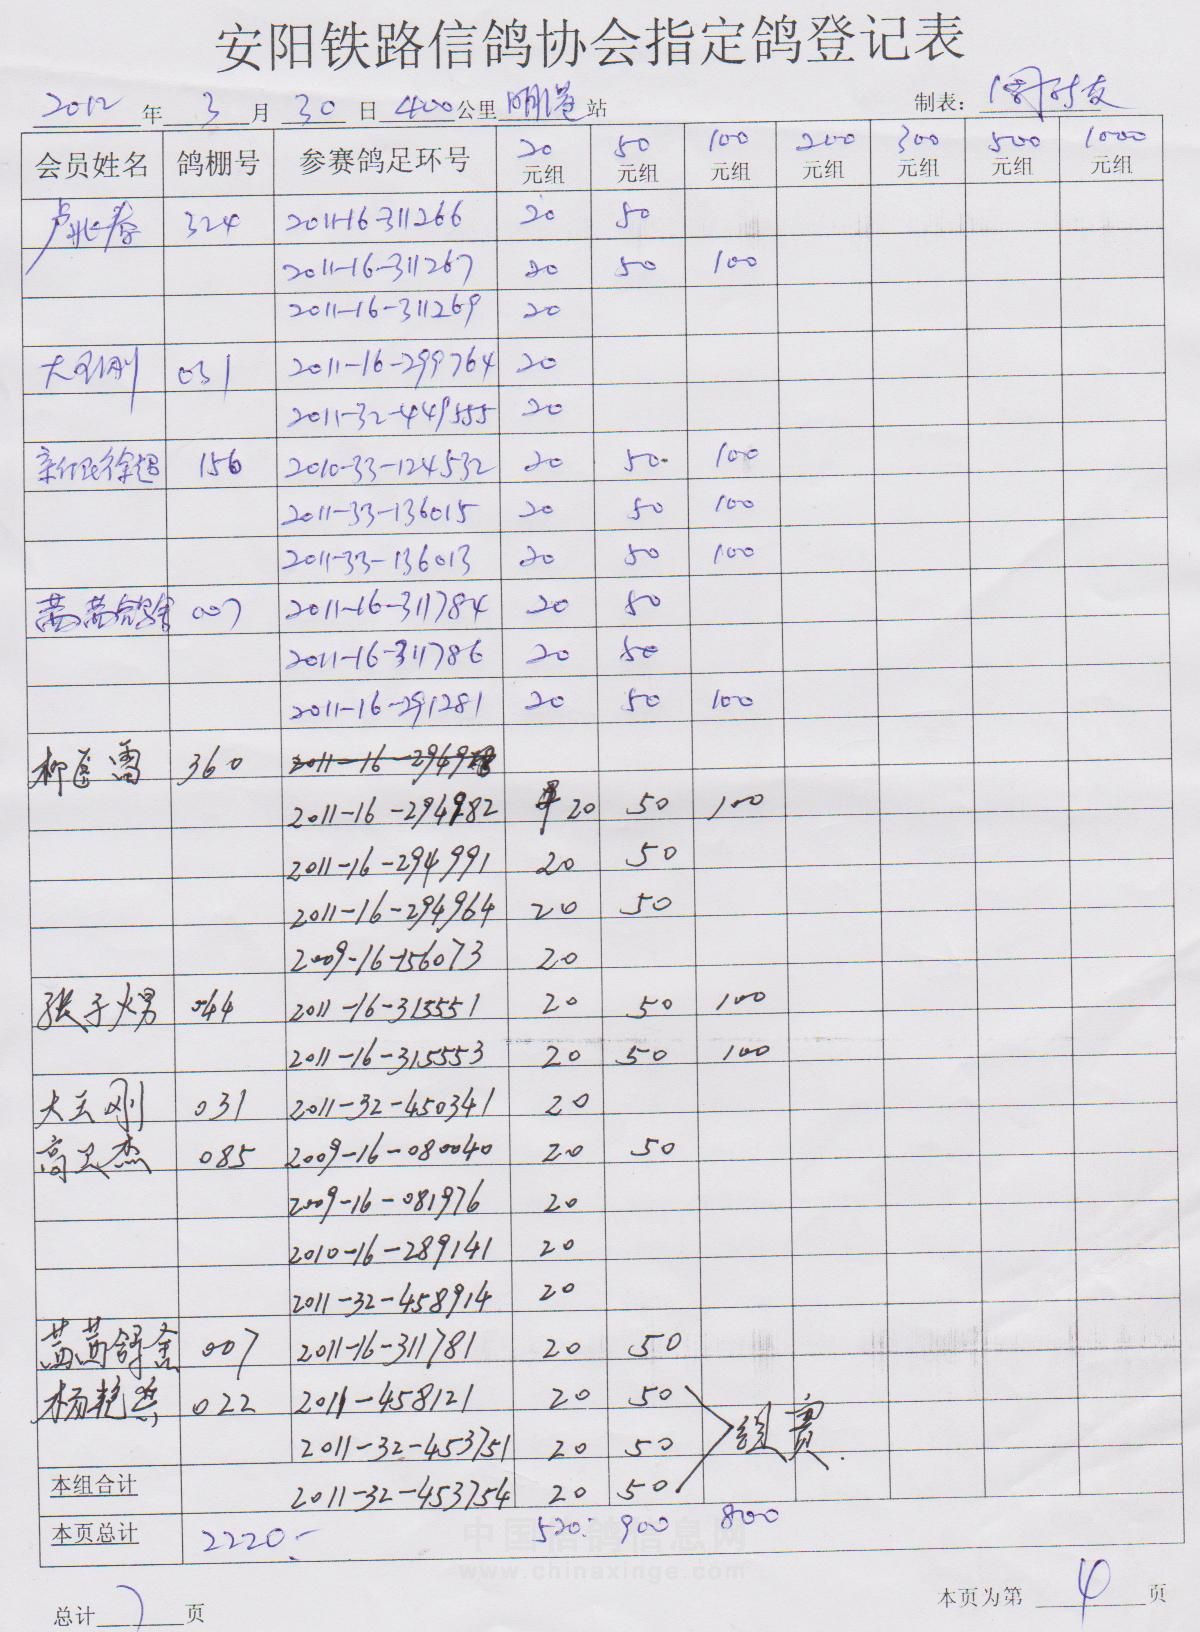 安阳铁路信鸽协会指定鸽登记表
2012 年 3 月 30 日 400 公里 站 制表:
会员姓名 鸽棚号 参赛鸽足环号 20元组 50元组 100元组 200元组 300元组 500元组 1000元组
324 2011-16-311266 20 50
2011-16-311267 20 50 100
2011-16-311269 20
031 2011-16-299764 20
2011-32-449555 20
156 2010-33-124532 20 50 100
2011-33-136015 20 50 100
2011-33-136013 20 50 100
007 2011-16-311784 20 50
2011-16-311786 20 50
2011-16-291281 20 50 100
360
2011-16-294982 20 50 100
2011-16-294991 20 50
2011-16-294964 20 50
2009-16-156073 20
044 2011-16-315551 20 50 100
2011-16-315553 20 50 100
031 2011-32-450341 20
085 2009-16-080040 20 50
2009-16-081976 20
2010-16-289141 20
2011-32-458914 20
007 2011-16-311781 20 50
022 2011-458121 20 50
2011-32-453751 20 50 组赛
本组合计 2011-32-453754 20 50
本页总计 2220 520 900 800
中国信鸽信息网
www.chinaxinge.com
总计 7 页 本页为第 4 页